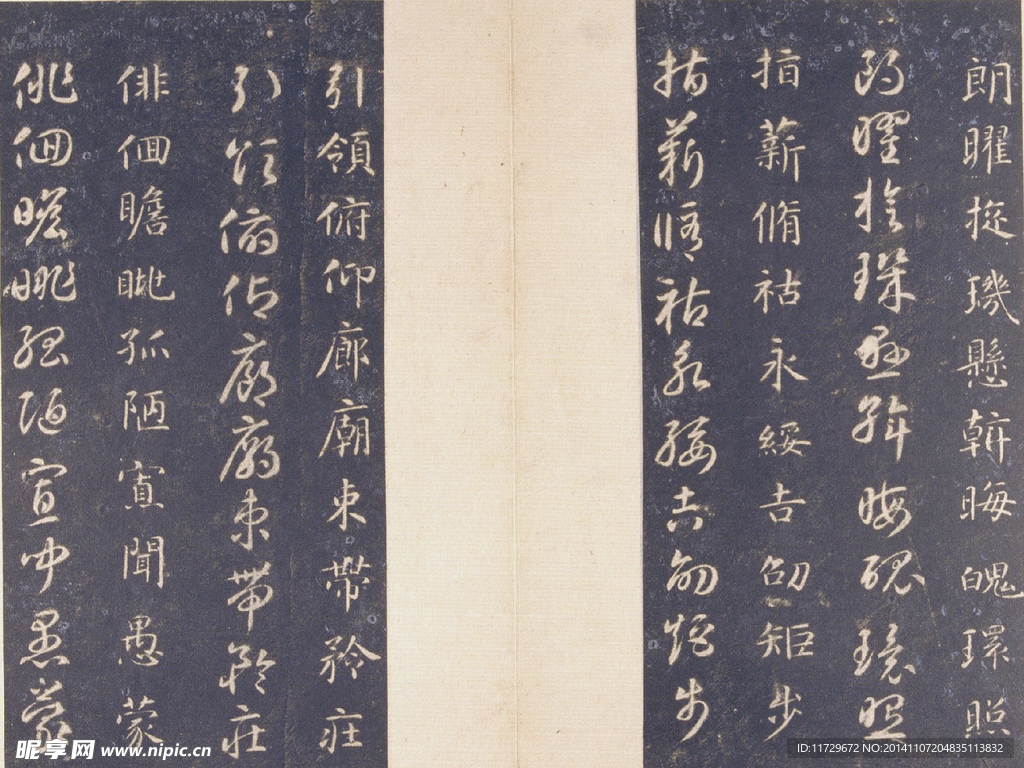 朗曜旋璣懸斡晦魄環照
朗曜旋璣懸斡晦魄環照
指薪脩祜永綏吉劭矩步
指薪脩祜永綏吉劭矩步
引領俯仰廊廟束帶矜莊
引領俯仰廊廟束帶矜莊
俳佪瞻眺孤陋寡聞愚蒙
俳佪瞻眺孤陋寡聞愚蒙
昵享网 www.nipic.cn
ID:11729672 NO:20141107204835113832